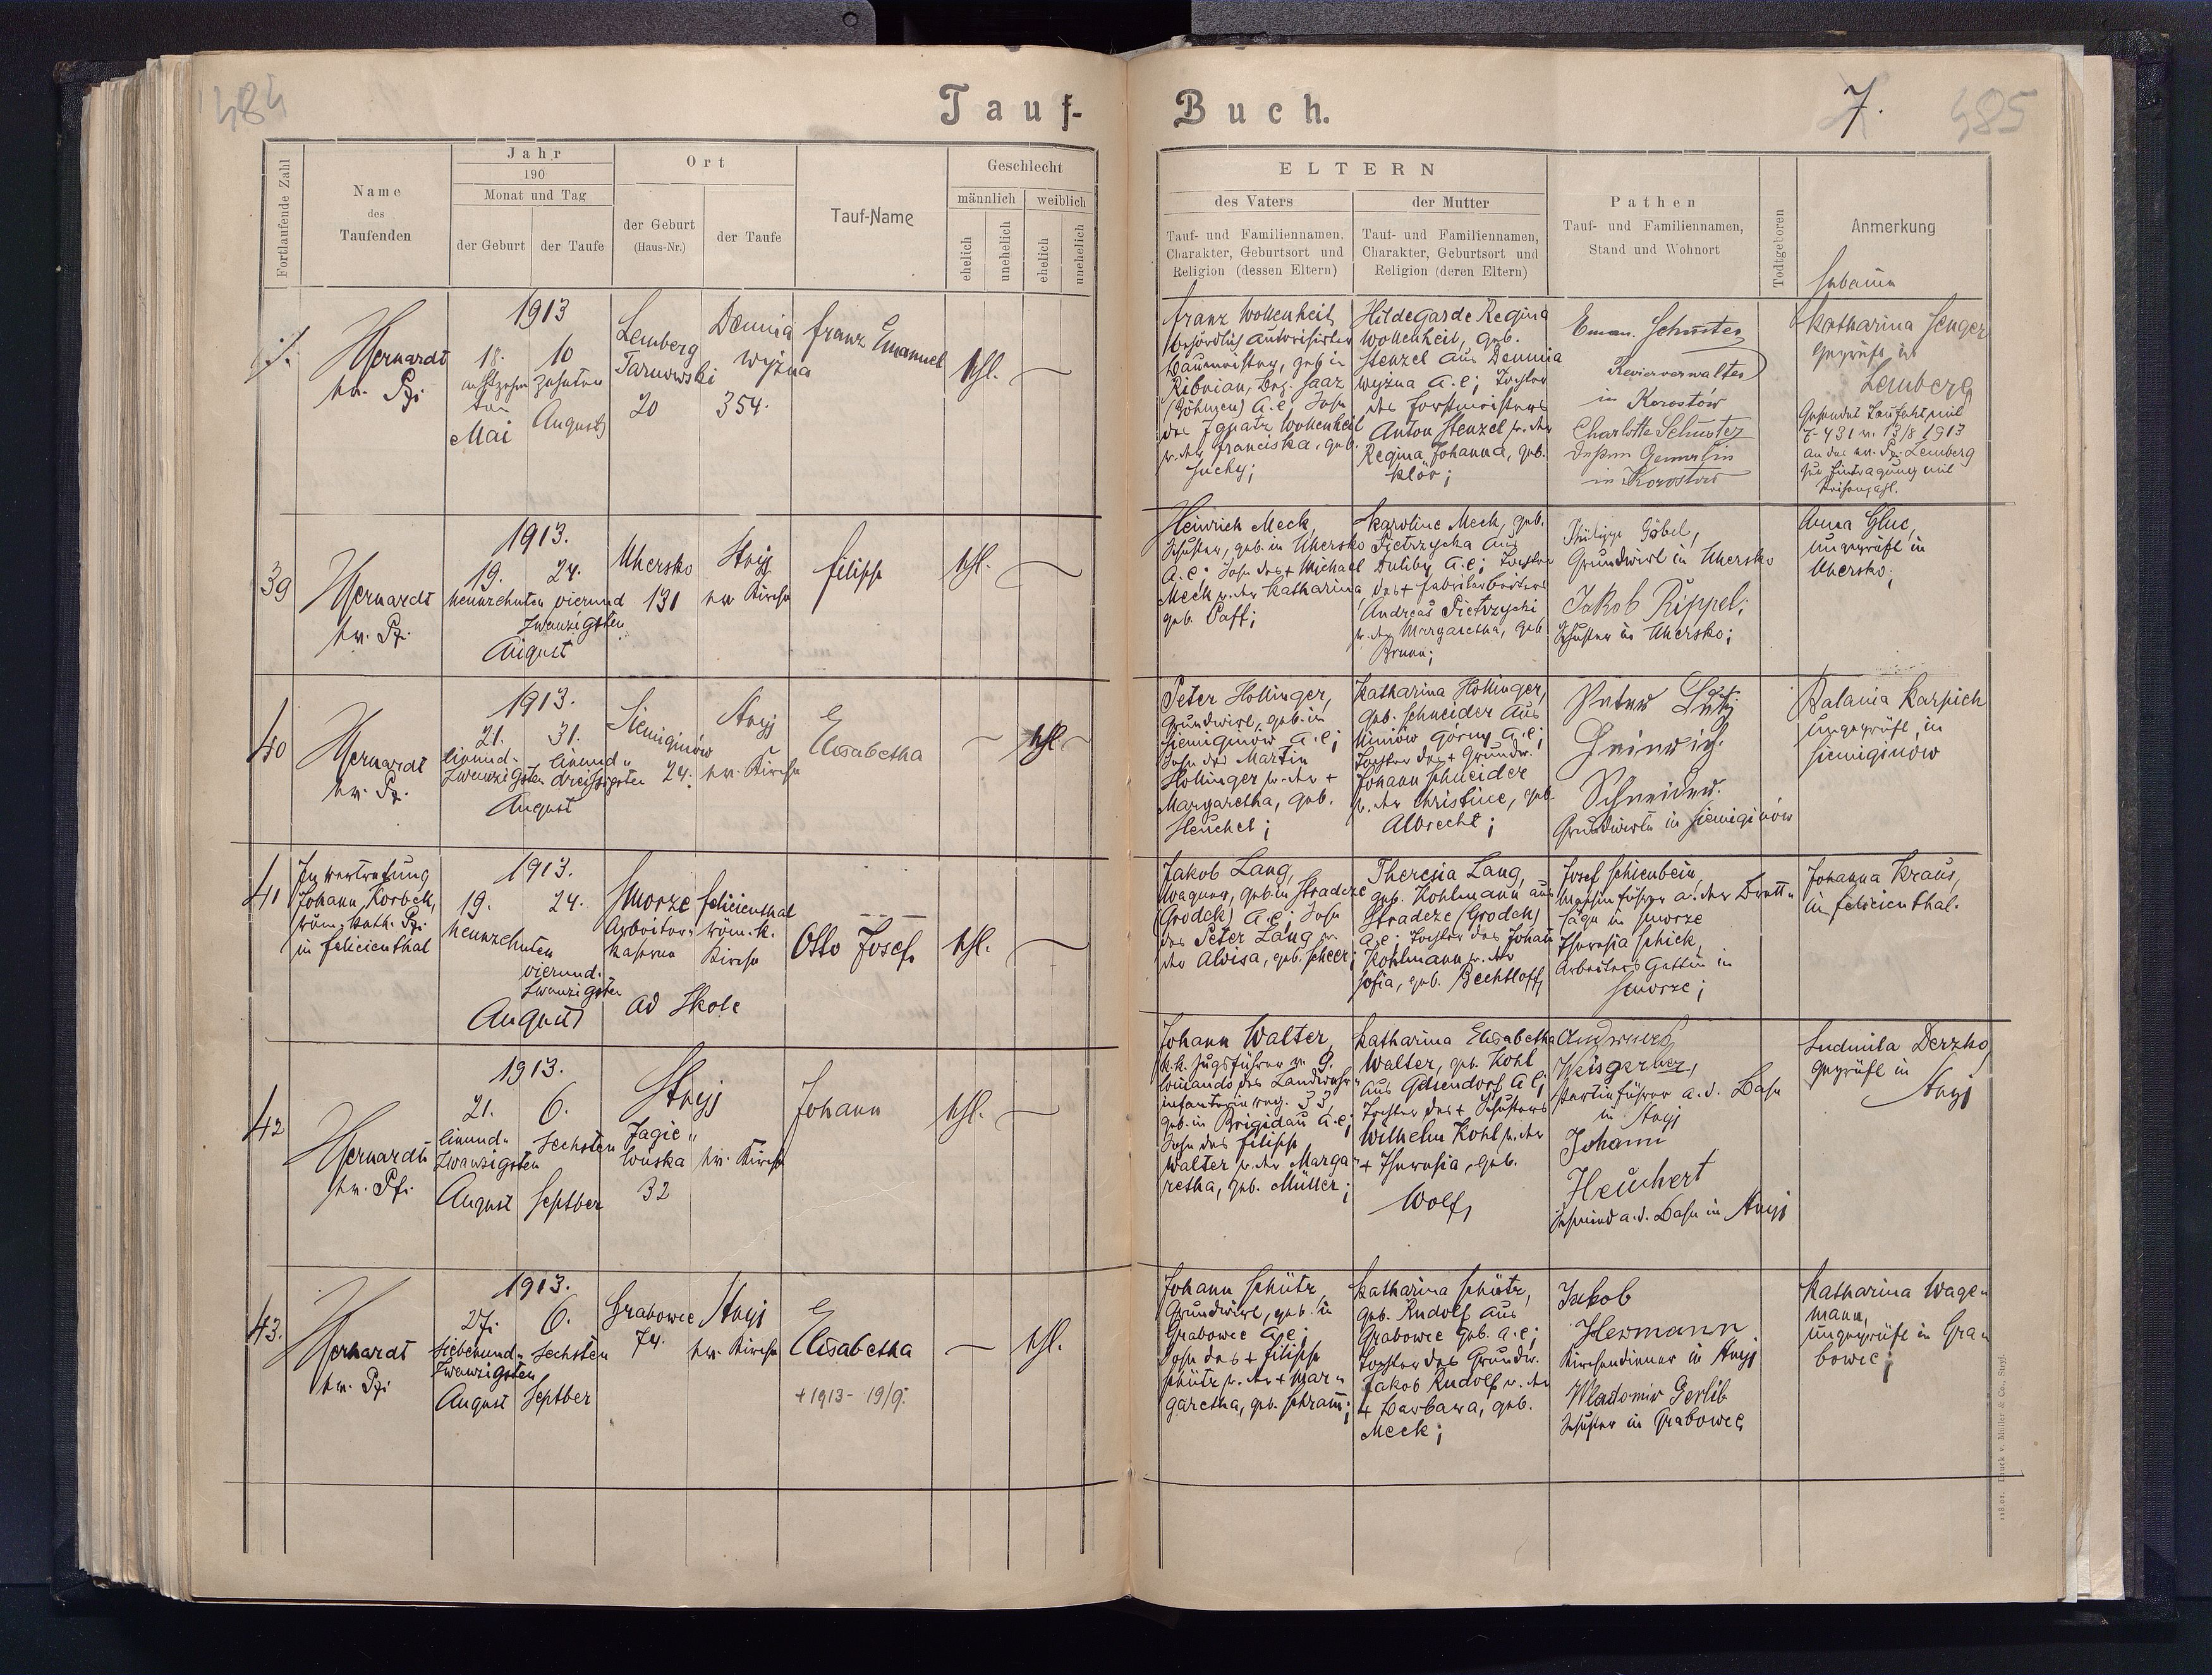 484
Tauf-
Buch.
7.
485
Fortlaufende Zahl
Name
des
Taufenden
Jahr
190
Monat und Tag
der Geburt
der Taufe
Ort
der Geburt
(Haus-Nr.)
der Taufe
Tauf-Name
Geschlecht
männlich
weiblich
ehelich
unehelich
ehelich
unehelich
ELTERN
des Vaters
der Mutter
Tauf- und Familiennamen,
Charakter, Geburtsort und
Religion (dessen Eltern)
Tauf- und Familiennamen,
Charakter, Geburtsort und
Religion (deren Eltern)
Pathen
Tauf- und Familiennamen,
Stand und Wohnort
Todtgeboren
Anmerkung
Hebamme
1913
18. 10
achtzehn zehnten
ten
Mai August
Lemberg
Tarnowski
20
Demnia
wyżna
354.
Franz Emanuel
ehl.
Franz Wollenheit,
behördlich autorisierter
Baumeister, geb. in
Bez. Saaz
(Böhmen) A.C. Sohn
des Ignatz Wollenheit
u. der Franciska, geb.
Suchy;
Hildegarde Regina
Wollenheit, geb.
Stenzel aus Demnia
wyżna A.C; Tochter
des Forstmeisters
Anton Stenzel u. der
Regina Johanna, geb.
Klör;
Eman. Schuster
Revierverwalter
in Korostów
Charlotte Schuster
dessen Gemahlin
in Korostów
Katharina Senger
geprüft in
Lemberg
431 v. 13/8 1913
an das ev. Pf. Lemberg
zur Eintragung mit
39
ev. Pf.
1913.
19. 24.
neunzehnten vierund
zwanzigsten
August
Uhersko
131
Stryj
ev. Kirche
Filipp
ehl.
Heinrich Meck,
Schuster, geb. in Uhersko
A.C; Sohn des + Michael
Meck u. der Katharina,
geb. Paft;
Karoline Meck, geb.
Pietrzycka aus
Duliby A.C; Tochter
des + Fabrikarbeiters
Andreas Pietrzycki
u. der Margaretha, geb.
Brunn;
Philipp Göbel,
Grundwirt in Uhersko
Jakob Rippel;
Schuster in Uhersko;
Anna Gluc,
ungeprüft in
Uhersko;
40
ev. Pf.
1913.
21. 31.
einund- einund-
zwanzigsten dreissigsten
August
Siemiginów
24.
Stryj
ev. Kirche
Elisabetha
ehl.
Peter Hollinger,
Grundwirt, geb. in
Siemiginów A.C;
Sohn des Martin
Hollinger u. der +
Margaretha, geb.
Heuchel;
Katharina Hollinger,
geb. Schneider aus
Winiów Górny A.C;
Tochter des + Grundw.
Johann Schneider
u. der Christine, geb.
Albrecht;
Peter Lutz
Heinrich
Schneider.
Grundwirte in Siemiginów
Karpich
ungeprüft, in
Siemiginów
41
In Vertretung
Johann Korbek,
röm. kath. Pf.
in Felicienthal
1913.
19. 24.
neunzehnten
vierund-
zwanzigsten
August
Smorze
Arbeiter-
kaserne
ad Skole
Felicienthal
röm. k.
Kirche
Otto Josef
ehl.
Jakob Lang,
Wagner, geb. in Stradcze
(Grodek) A.C; Sohn
des Peter Lang u.
der Aloisa, geb. Scheer;
Theresia Lang,
geb. Kohlmann aus
Stradcze (Grodek)
A.C; Tochter des Johann
Kohlmann u. der
Sofia, geb. Bechtloff;
Josef Schienbein,
Maschinführer a. der Brett-
säge in Smorze
Theresia Schick,
Arbeiters Gattin in
Smorze;
Johanna Kraus,
in Felicienthal.
42
ev. Pf.
1913.
21. 6.
einund- sechsten
zwanzigsten
August Septber
Stryj
Jagie-
łońska
32
ev. Kirche
Johann
ehl.
Johann Walter,
k.k. Zugsführer
des Landwehr-
infanterie reg. 33,
geb. in Brigidau A.C;
Sohn des Filipp
Walter u. der Marga-
retha, geb. Müller;
Katharina Elisabetha
Walter, geb. Kohl
aus Gelsendorf A.C;
Tochter des + Schusters
Wilhelm Kohl u. der
+ Theresia, geb.
Wolf;
Andreas
Weisgerber,
Partieführer a.d. Bahn
in Stryj
Johann
Heuchert
Schmied a.d. Bahn in Stryj
Ludmila Derzko
geprüft in
Stryj
43.
ev. Pf.
1913.
27. 6.
siebenund- sechsten
zwanzigsten
August Septber
Grabowce
74.
Stryj
ev. Kirche
Elisabetha
+ 1913 - 19/9.
ehl.
Johann Schütz,
Grundwirt, geb. in
Grabowce A.C;
Sohn des + Filipp
Schütz u. der + Mar-
garetha, geb. Schramm;
Katharina Schütz,
geb. Rudolf aus
Grabowce geb. A.C;
Tochter des Grundw.
Jakob Rudolf u. der
+ Barbara, geb.
Meck;
Jakob
Hermann
Kirchendiener in Stryj
Gerlib
Schuster in Grabowce
Katharina Wage-
mann,
ungeprüft in Gra-
bowce;
Druck v. Müller & Co., Stryj.